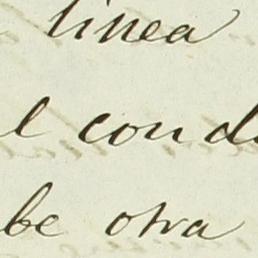 linea
l cond
be otra